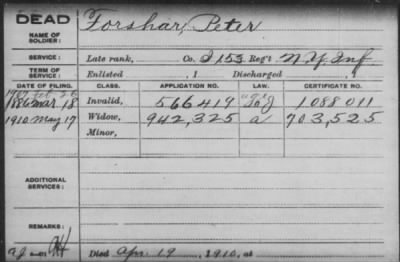 DEAD
NAME OF SOLDIER: Forshar, Peter
SERVICE: Late rank, Co. I 153 Reg't N.Y. Inf
TERM OF SERVICE: Enlisted , 1 Discharged , 1
DATE OF FILING. CLASS. APPLICATION NO. LAW. CERTIFICATE NO.
1886 Mar. 18 Invalid, 566419 1088011
1910 May 17 Widow, 942,325 a 703,525
Minor,
ADDITIONAL SERVICES:
REMARKS:
Died Apr. 19, 1910, at